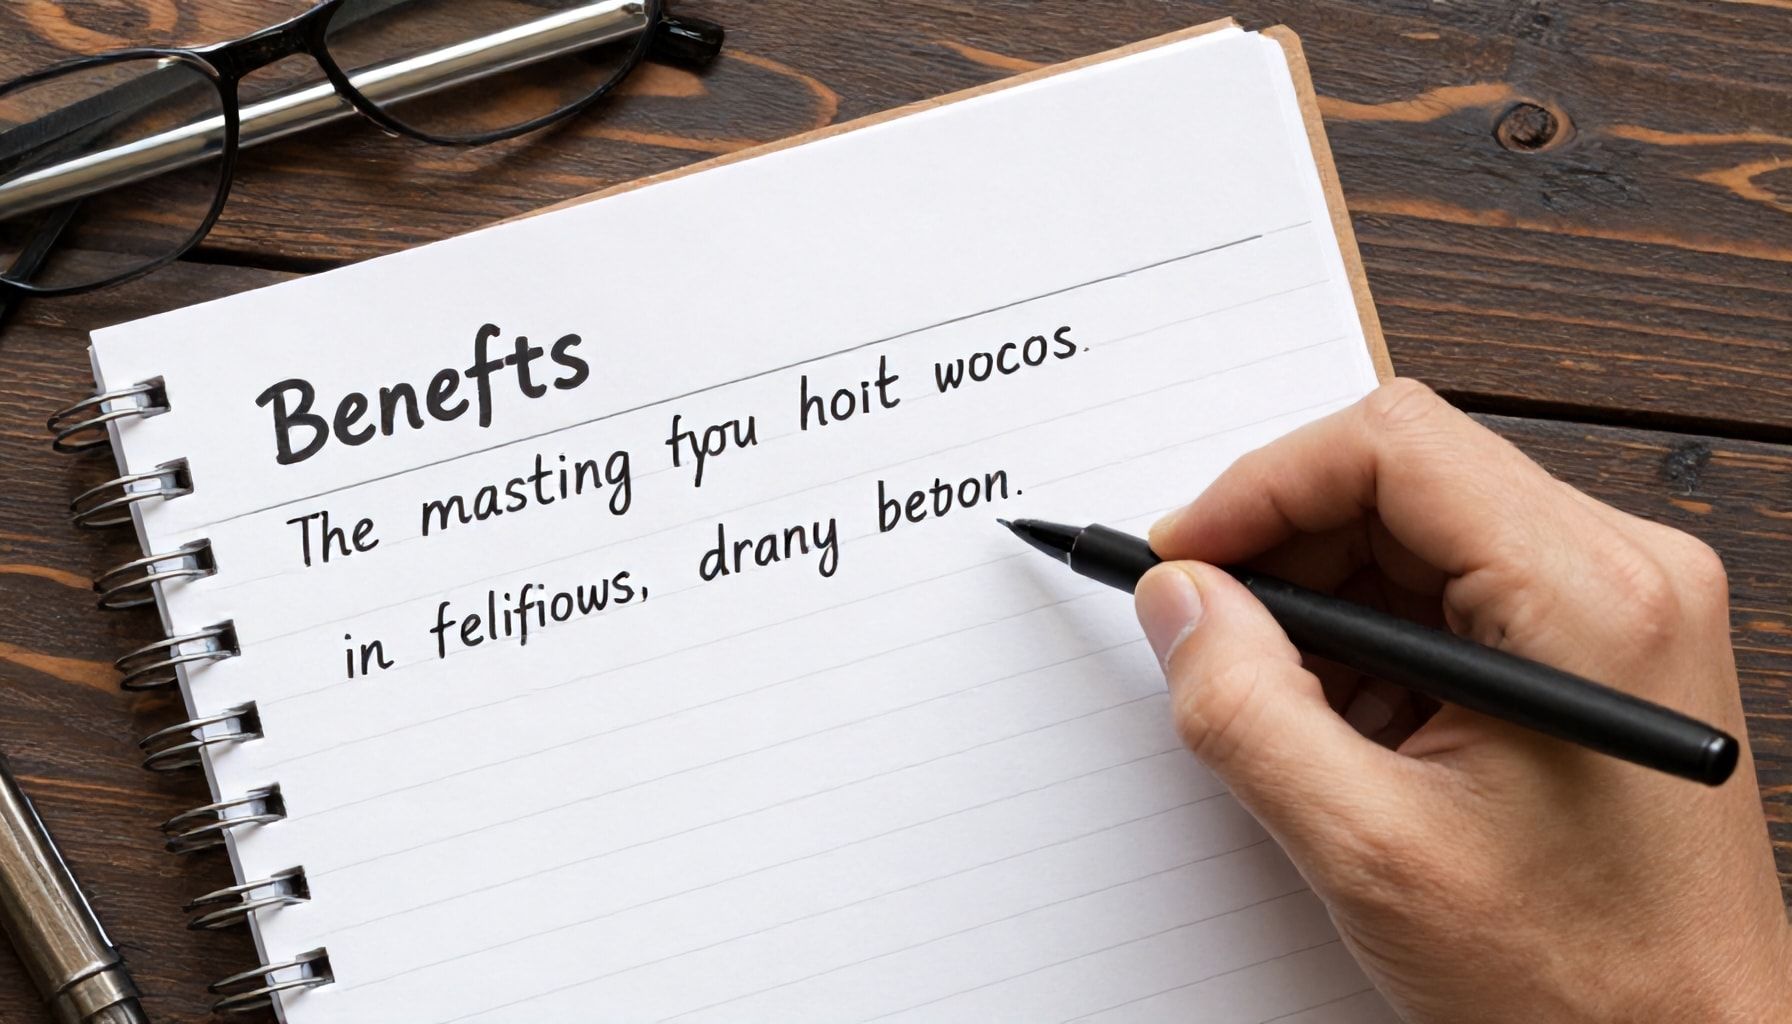 Benefts
The masting fypu hoit wocos.
in felifiows, drany bebon.